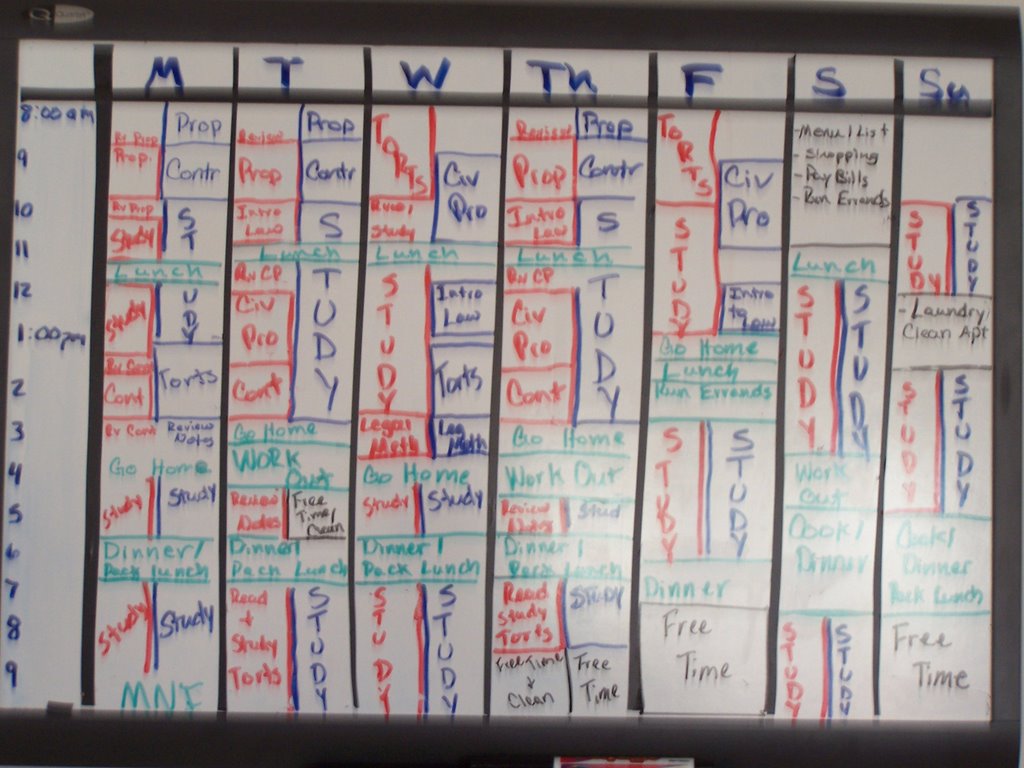 Quartet
M T W Th F S Su
8:00am
9
10
11
12
1:00pm
2
3
4
5
6
7
8
9
Rv Prop
Prop.
Rv Prop
Study
Prop
Contr
ST
Lunch
Study
Rv Cont
Cont
Rv Cont
UDY
Torts
Review
Notes
Go Home
Study
Study
Dinner/
Pack Lunch
Study
Study
MNF
Review
Prop
Intro
Law
Prop
Contr
S
Lunch
Rv CP
Civ
Pro
Cont
TUDY
Go Home
Work
Out
Review
Notes
Free
Time/
Clean
Dinner/
Pack Lunch
Read
+
Study
Torts
STUDY
TORTS
Rvw/
Study
Civ
Pro
Lunch
STUDY
Intro
Law
Torts
Legal
Meth
Leg
Meth
Go Home
Study
Study
Dinner/
Pack Lunch
STUDY
STUDY
Review
Prop
Intro
Law
Prop
Contr
S
Lunch
Rv CP
Civ
Pro
Cont
TUDY
Go Home
Work Out
Review
Notes
Stud
Dinner/
Pack Lunch
Read
Study
Torts
STUDY
Free Time
+
Clean
Free
Time
TORTS
STUDY
Civ
Pro
Intro
to Law
Go Home
Lunch
Run Errands
STUDY
STUDY
Dinner
Free
Time
-Menu/List
- Shopping
- Pay Bills
- Run Errands
Lunch
STUDY
STUDY
Work
Out
Cook/
Dinner
STUDY
STUDY
STUDY
STUDY
- Laundry/
Clean Apt
STUDY
STUDY
Cook/
Dinner
Pack Lunch
Free
Time